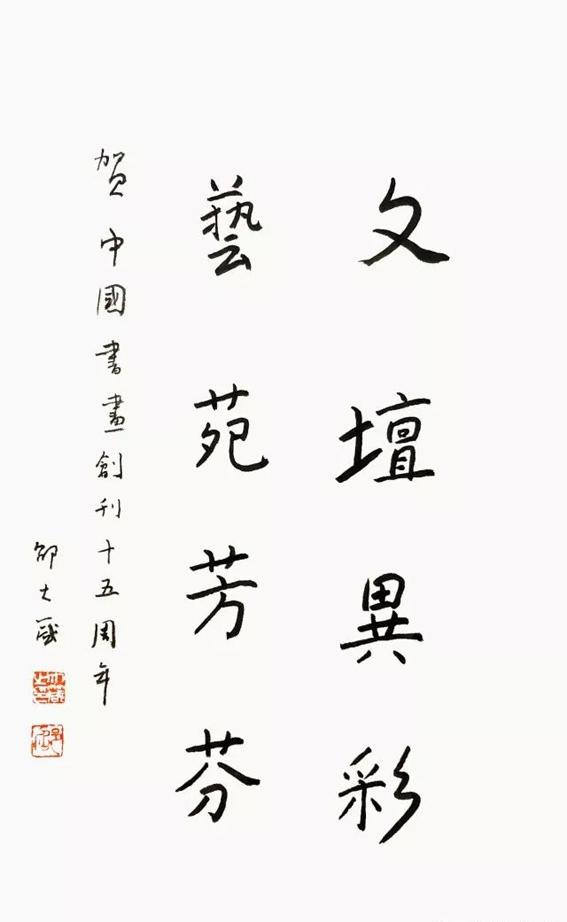 文壇異彩
藝苑芳芬
贺中國書畫創刊十五周年
邵大箴